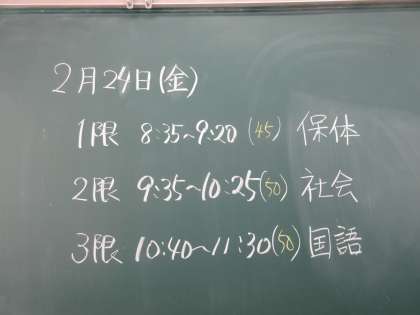 2月24日(金)
1限 8:35~9:20 (45) 保体
2限 9:35~10:25(50) 社会
3限 10:40~11:30(50) 国語